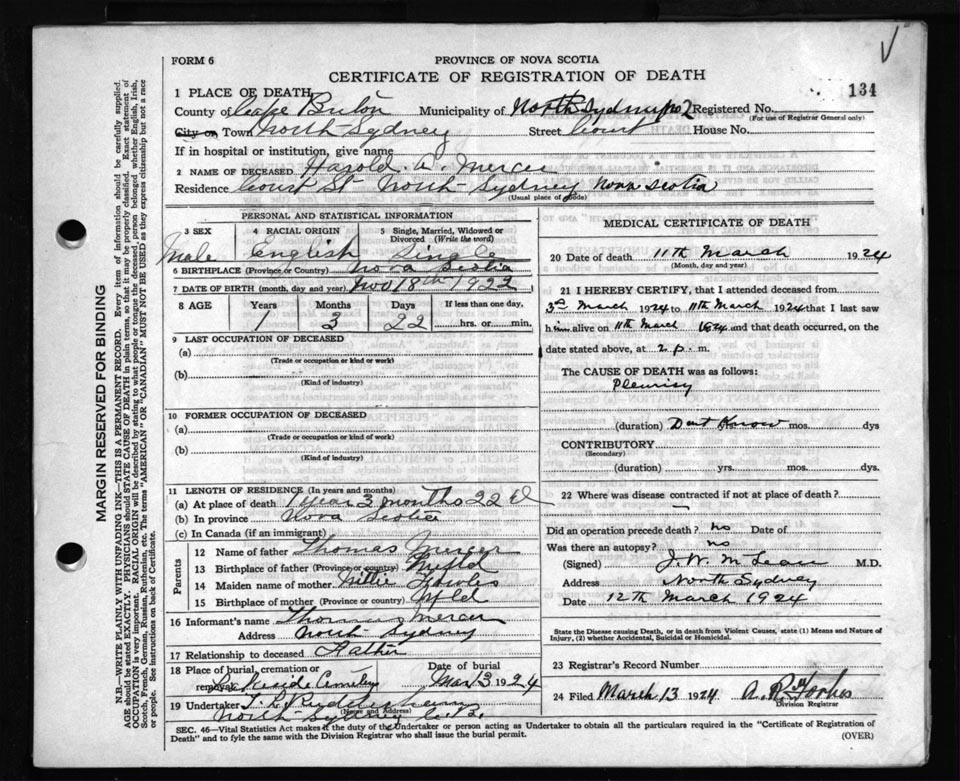 FORM 6
PROVINCE OF NOVA SCOTIA
CERTIFICATE OF REGISTRATION OF DEATH
134
1 PLACE OF DEATH
County of Cape Breton Municipality of North Sydney No 2 Registered No.
(For use of Registrar General only)
City or Town North Sydney Street Court House No.
If in hospital or institution, give name
2 NAME OF DECEASED Harold A. Mercer
Residence Court St North Sydney Nova Scotia
(Usual place of abode)
PERSONAL AND STATISTICAL INFORMATION
3 SEX 4 RACIAL ORIGIN 5 Single, Married, Widowed or Divorced (Write the word)
Male English Single
6 BIRTHPLACE (Province or Country) Nova Scotia
7 DATE OF BIRTH (month, day and year) Nov 18th 1922
8 AGE Years Months Days If less than one day,
1 3 22 hrs. or min.
9 LAST OCCUPATION OF DECEASED
(a)
(Trade or occupation or kind of work)
(b)
(Kind of industry)
10 FORMER OCCUPATION OF DECEASED
(a)
(Trade or occupation or kind of work)
(b)
(Kind of industry)
11 LENGTH OF RESIDENCE (In years and months)
(a) At place of death 1 year 3 months 22 d
(b) In province Nova Scotia
(c) In Canada (if an immigrant)
Parents
12 Name of father Thomas Mercer
13 Birthplace of father (Province or country) Nfld
14 Maiden name of mother
15 Birthplace of mother (Province or country) Nfld
16 Informant's name Thomas Mercer
Address North Sydney
17 Relationship to deceased Father
18 Place of burial, cremation or removal Lakeside Cemetery Date of burial Mar 13 1924
19 Undertaker
(Name and Address)
North Sydney C.B.
MEDICAL CERTIFICATE OF DEATH
20 Date of death 11th March 1924
(Month, day and year)
21 I HEREBY CERTIFY, that I attended deceased from
3rd March 1924 to 11th March 1924 that I last saw
him alive on 11th March 1924 and that death occurred, on the
date stated above, at 2 p. m.
The CAUSE OF DEATH was as follows:
Pleurisy
(duration) Dont Know mos. dys
CONTRIBUTORY
(Secondary)
(duration) yrs. mos. dys.
22 Where was disease contracted if not at place of death?
Did an operation precede death? no Date of
Was there an autopsy? no
(Signed) J. W. McLean M.D.
Address North Sydney
Date 12th March 1924
State the Disease causing Death, or in death from Violent Causes, state (1) Means and Nature of
Injury, (2) whether Accidental, Suicidal or Homicidal.
23 Registrar's Record Number
24 Filed March 13 1924 A. R. Forbes
Division Registrar
SEC. 46—Vital Statistics Act makes it the duty of the Undertaker or person acting as Undertaker to obtain all the particulars required in the "Certificate of Registration of
Death" and to fyle the same with the Division Registrar who shall issue the burial permit.
(OVER)
MARGIN RESERVED FOR BINDING
N.B.—WRITE PLAINLY WITH UNFADING INK—THIS IS A PERMANENT RECORD. Every item of information should be carefully supplied.
AGE should be stated EXACTLY. PHYSICIANS should STATE CAUSE OF DEATH in plain terms, so that it may be properly classified. Exact statement of
OCCUPATION is very important. RACIAL ORIGIN will be described by stating to what people or tongue the deceased person belonged whether English, Irish,
Scotch, French, German, Russian, Ruthenian, etc. The terms "AMERICAN" or "CANADIAN" MUST NOT BE USED as they express citizenship but not a race
or people. See instructions on back of Certificate.